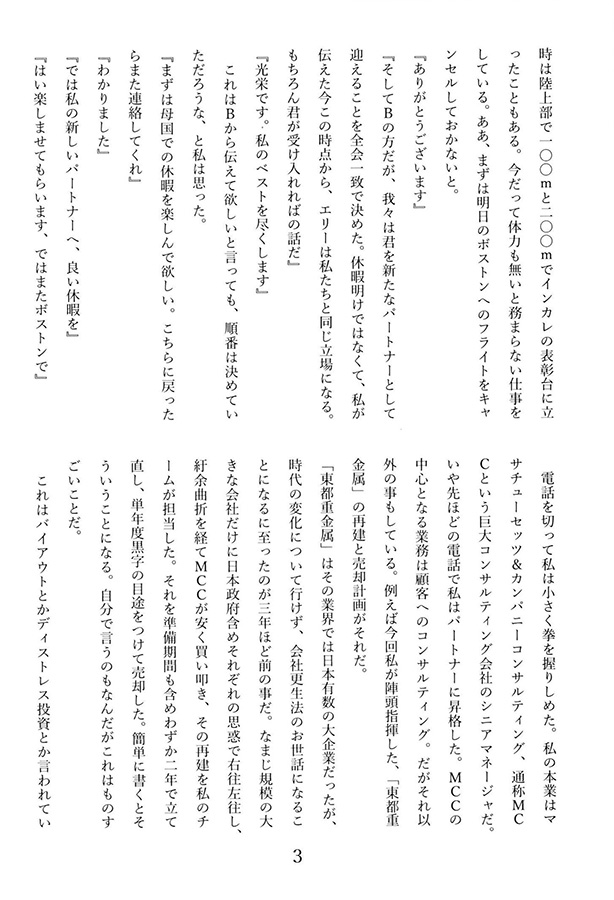 時は陸上部で一〇〇ｍと二〇〇ｍでインカレの表彰台に立
ったこともある。今だって体力も無いと務まらない仕事を
している。ああ、まずは明日のボストンへのフライトをキャ
ンセルしておかないと。
『ありがとうございます』
『そしてＢの方だが、我々は君を新たなパートナーとして
迎えることを全会一致で決めた。休暇明けではなくて、私が
伝えた今この時点から、エリーは私たちと同じ立場になる。
もちろん君が受け入れればの話だ』
『光栄です。私のベストを尽くします』
これはＢから伝えて欲しいと言っても、順番は決めてい
ただろうな、と私は思った。
『まずは母国での休暇を楽しんで欲しい。こちらに戻った
らまた連絡してくれ』
『わかりました』
『では私の新しいパートナーへ、良い休暇を』
『はい楽しませてもらいます、ではまたボストンで』
電話を切って私は小さく拳を握りしめた。私の本業はマ
サチューセッツ＆カンパニーコンサルティング、通称ＭＣ
Ｃという巨大コンサルティング会社のシニアマネージャだ。
いや先ほどの電話で私はパートナーに昇格した。ＭＣＣの
中心となる業務は顧客へのコンサルティング。だがそれ以
外の事もしている。例えば今回私が陣頭指揮した、「東都重
金属」の再建と売却計画がそれだ。
「東都重金属」はその業界では日本有数の大企業だったが、
時代の変化について行けず、会社更生法のお世話になるこ
とになるに至ったのが三年ほど前の事だ。なまじ規模の大
きな会社だけに日本政府含めそれぞれの思惑で右往左往し、
紆余曲折を経てＭＣＣが安く買い叩き、その再建を私のチ
ームが担当した。それを準備期間も含めわずか二年で立て
直し、単年度黒字の目途をつけて売却した。簡単に書くとそ
ういうことになる。自分で言うのもなんだがこれはものす
ごいことだ。
これはバイアウトとかディストレス投資とか言われてい
3